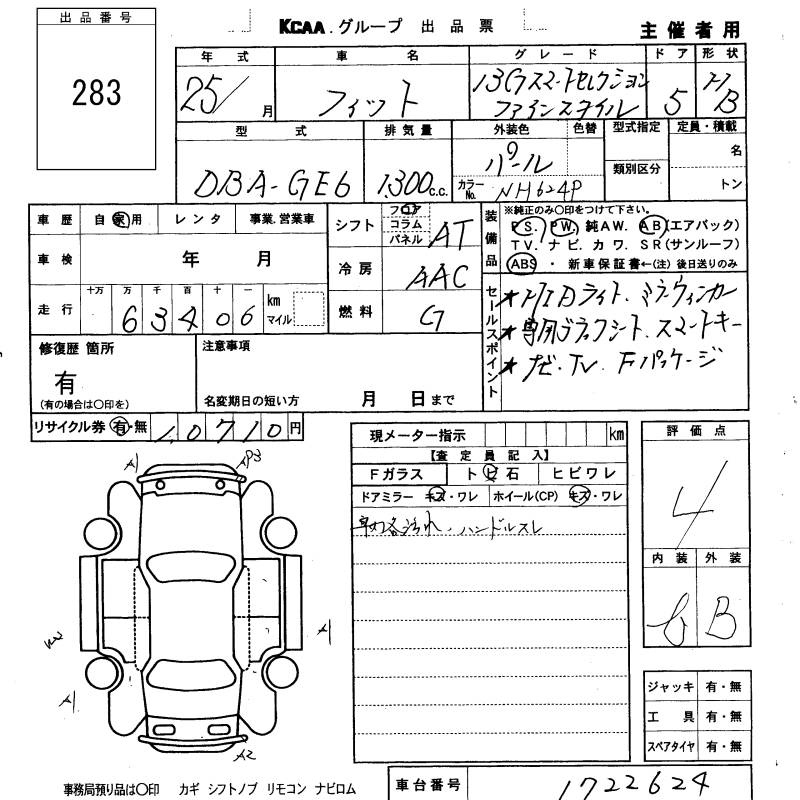 出品番号
283
KCAA.グループ 出品票
主催者用
年式 車名 グレード ドア 形状
25/ 月 フィット 13Gスマートセレクション ファインスタイル 5 H/B
型式 排気量 外装色 色替 型式指定 定員・積載
DBA-GE6 1,300 c.c. パール 類別区分 名
カラーNo. NH624P トン
車歴 自家用 レンタ 事業.営業車
シフト フロア コラム パネル AT
装備品 ※純正のみ〇印をつけて下さい。
PS. PW. 純AW. AB(エアバック)
TV. ナビ. カワ. SR(サンルーフ)
ABS ・ 新車保証書←(注)後日送りのみ
車検 年 月
冷房 AAC
走行 十万 万 千 百 十 一 km マイル
6 3 4 0 6
燃料 G
セールスポイント
★HIDライト.ミラーウィンカー
★専用ブラックシート.スマートキー
★ナビ.TV Fパッケージ
修復歴 箇所
有
(有の場合は〇印を)
注意事項
名変期日の短い方 月 日まで
リサイクル券 有・無 1,0710円
現メーター指示 km
【査定員記入】
Fガラス ト ビ 石 ヒビワレ
ドアミラー キズ・ワレ ホイール(CP) キズ・ワレ
ハンドルスレ
評価点
4
内装 外装
B
A1
A1
A1
A2
ジャッキ 有・無
工具 有・無
スペアタイヤ 有・無
事務局預り品は〇印 カギ シフトノブ リモコン ナビロム
車台番号 1722624